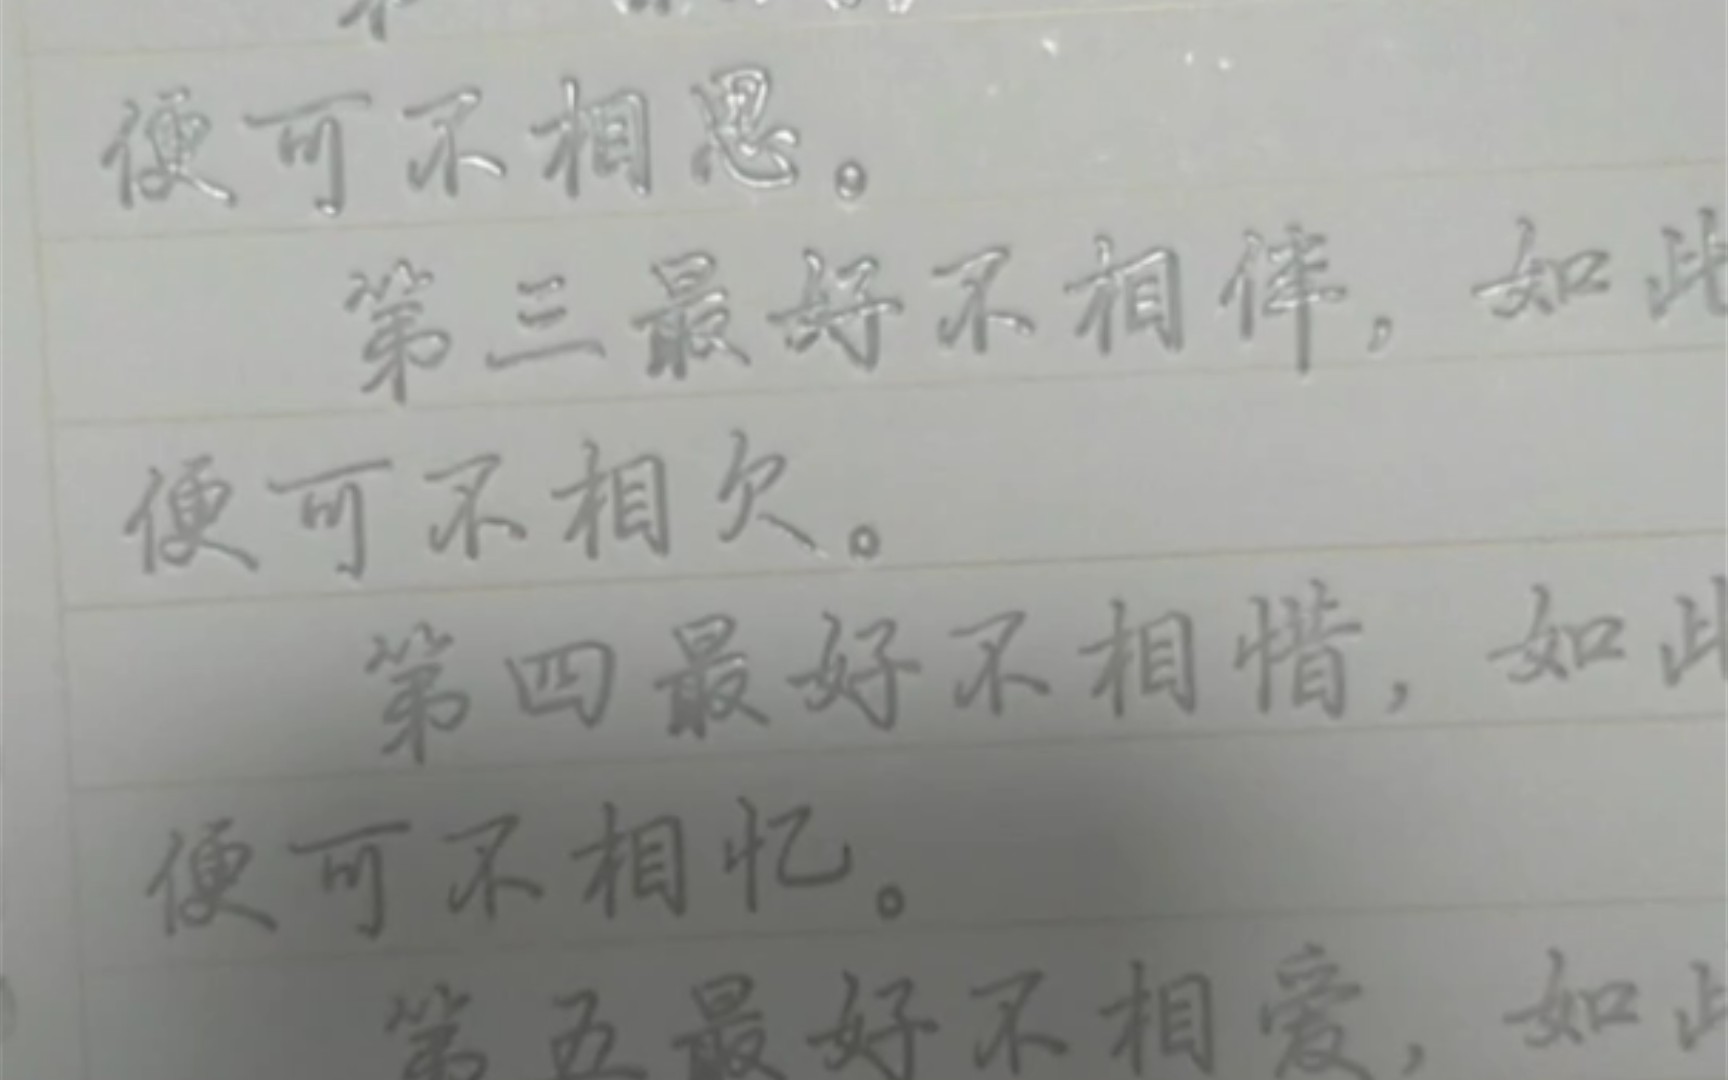 便可不相思。
第三最好不相伴，如此
便可不相欠。
第四最好不相惜，如此
便可不相忆。
第五最好不相爱，如此